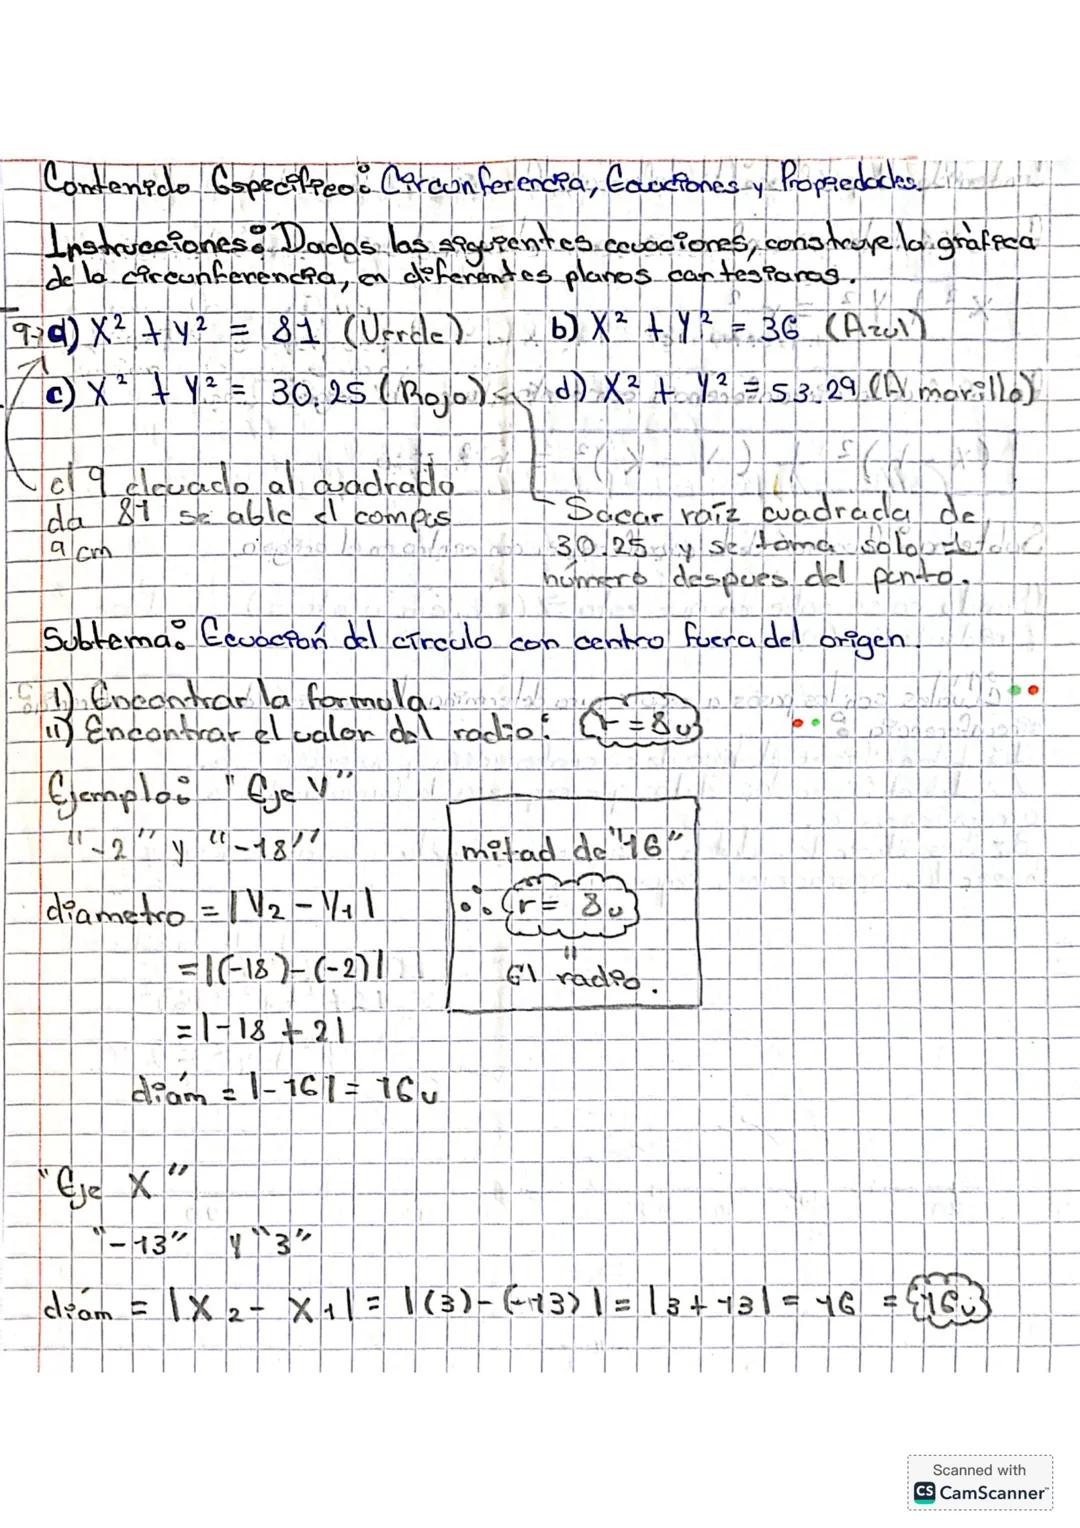 Contenido Específico: Circunferencia, Ecuaciones y Propiedades.
Instrucciones: Dadas las siguientes ecuaciones, construye la gráfica
de la circunferencia, en diferentes planos cartesianos.
9→ a) X² + y² = 81 (Verde) b) X² + y² = 36 (Azul)
c) X² + y² = 30.25 (Rojo) d) X² + y² = 53.29 (Amarillo)
el 9 elevado al cuadrado
da 81 se able el compas
9 cm
Sacar raíz cuadrada de
30.25 y se toma solo el
número despues del punto.
Subtema: Ecuación del círculo con centro fuera del origen.
I) Encontrar la formula.
II) Encontrar el valor del radio: r = 8u
Ejemplo: "Eje Y"
"-2" y "-18"
diametro = |Y2 - Y1|
= |(-18)-(-2)|
= |-18 + 2|
diám = |-16| = 16u
mitad de "16"
∴ r = 8u
"
El radio.
"Eje X"
"-13" y "3"
diám = |X2 - X1| = |(3)-(-13)| = |3+13| = 16 = 16u
Scanned with
CS CamScanner